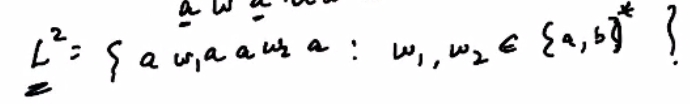 a w a
L² = { a w₁ a a w₂ a : w₁, w₂ ∈ {a, b}* }